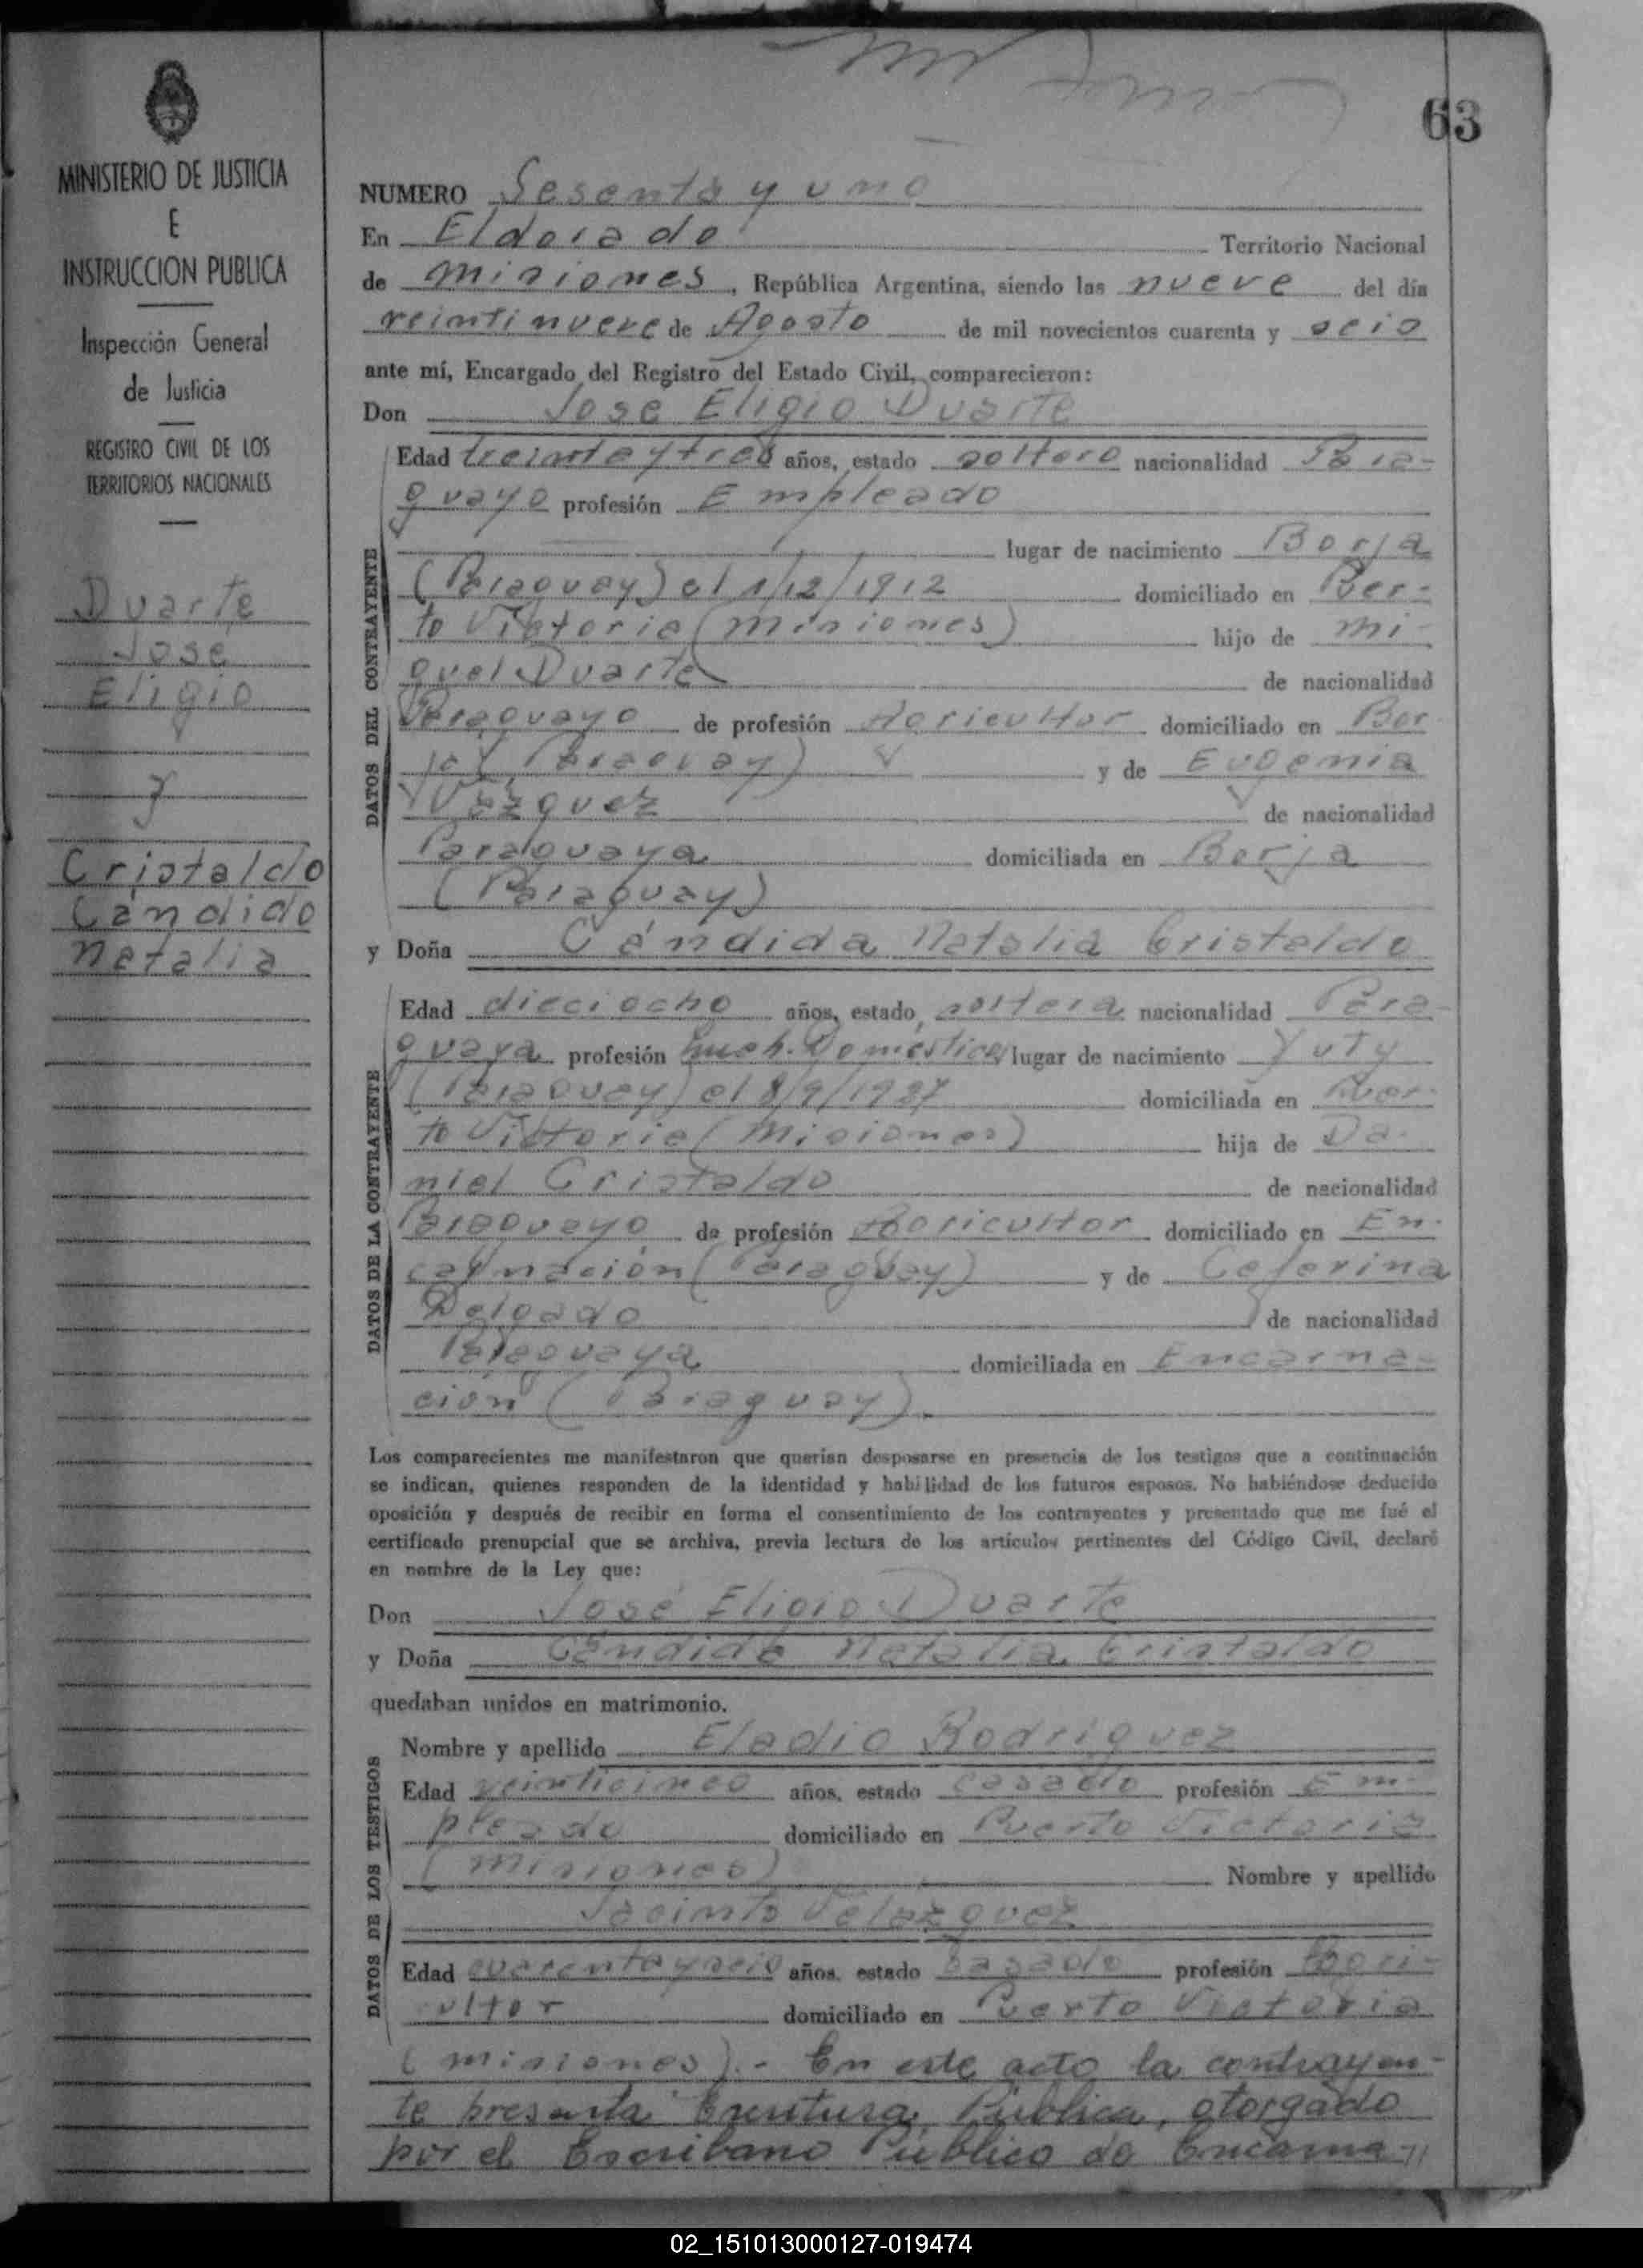 63
MINISTERIO DE JUSTICIA
E
INSTRUCCION PUBLICA
Inspección General
de Justicia
REGISTRO CIVIL DE LOS
TERRITORIOS NACIONALES
Duarte
José
Eligio
y
Cristaldo
Cándido
Natalia
NUMERO Sesenta y uno
En Eldorado Territorio Nacional
de Misiones, República Argentina, siendo las nueve del día
veintinueve de Agosto de mil novecientos cuarenta y seis
ante mí, Encargado del Registro del Estado Civil, comparecieron:
Don José Eligio Duarte
Edad treinta y tres años, estado soltero nacionalidad Para-
guayo profesión Empleado
lugar de nacimiento Borja
(Paraguay) el 1/12/1912 domiciliado en Puer-
to Victoria (Misiones) hijo de Mi-
guel Duarte de nacionalidad
Paraguayo de profesión Agricultor domiciliado en Bor-
ja (Paraguay) y de Eugenia
Vázquez de nacionalidad
Paraguaya domiciliada en Borja
(Paraguay)
y Doña Cándida Natalia Cristaldo
Edad dieciocho años, estado soltera nacionalidad Para-
guaya profesión Domésticos lugar de nacimiento Yuty
(Paraguay) el 8/9/1927 domiciliada en Puer-
to Victoria (Misiones) hija de Da-
niel Cristaldo de nacionalidad
Paraguayo de profesión Agricultor domiciliado en En-
carnación (Paraguay) y de Ceferina
Delgado de nacionalidad
Paraguaya domiciliada en Encarna-
ción (Paraguay).
DATOS DEL CONTRAYENTE
DATOS DE LA CONTRAYENTE
Los comparecientes me manifestaron que querían desposarse en presencia de los testigos que a continuación
se indican, quienes responden de la identidad y habilidad de los futuros esposos. No habiéndose deducido
oposición y después de recibir en forma el consentimiento de los contrayentes y presentado que me fué el
certificado prenupcial que se archiva, previa lectura de los artículos pertinentes del Código Civil, declaré
en nombre de la Ley que:
Don José Eligio Duarte
y Doña Cándida Natalia Cristaldo
quedaban unidos en matrimonio.
DATOS DE LOS TESTIGOS
Nombre y apellido Eladio Rodriguez
Edad veinticinco años, estado casado profesión Em-
pleado domiciliado en Puerto Victoria
(Misiones) Nombre y apellido
Jacinto Velazquez
Edad cuarenta y seis años, estado casado profesión Agri-
cultor domiciliado en Puerto Victoria
(Misiones).- En este acto la contrayen-
te presenta Escritura Pública, otorgado
por el Escribano Público de Encarna-
02_151013000127-019474